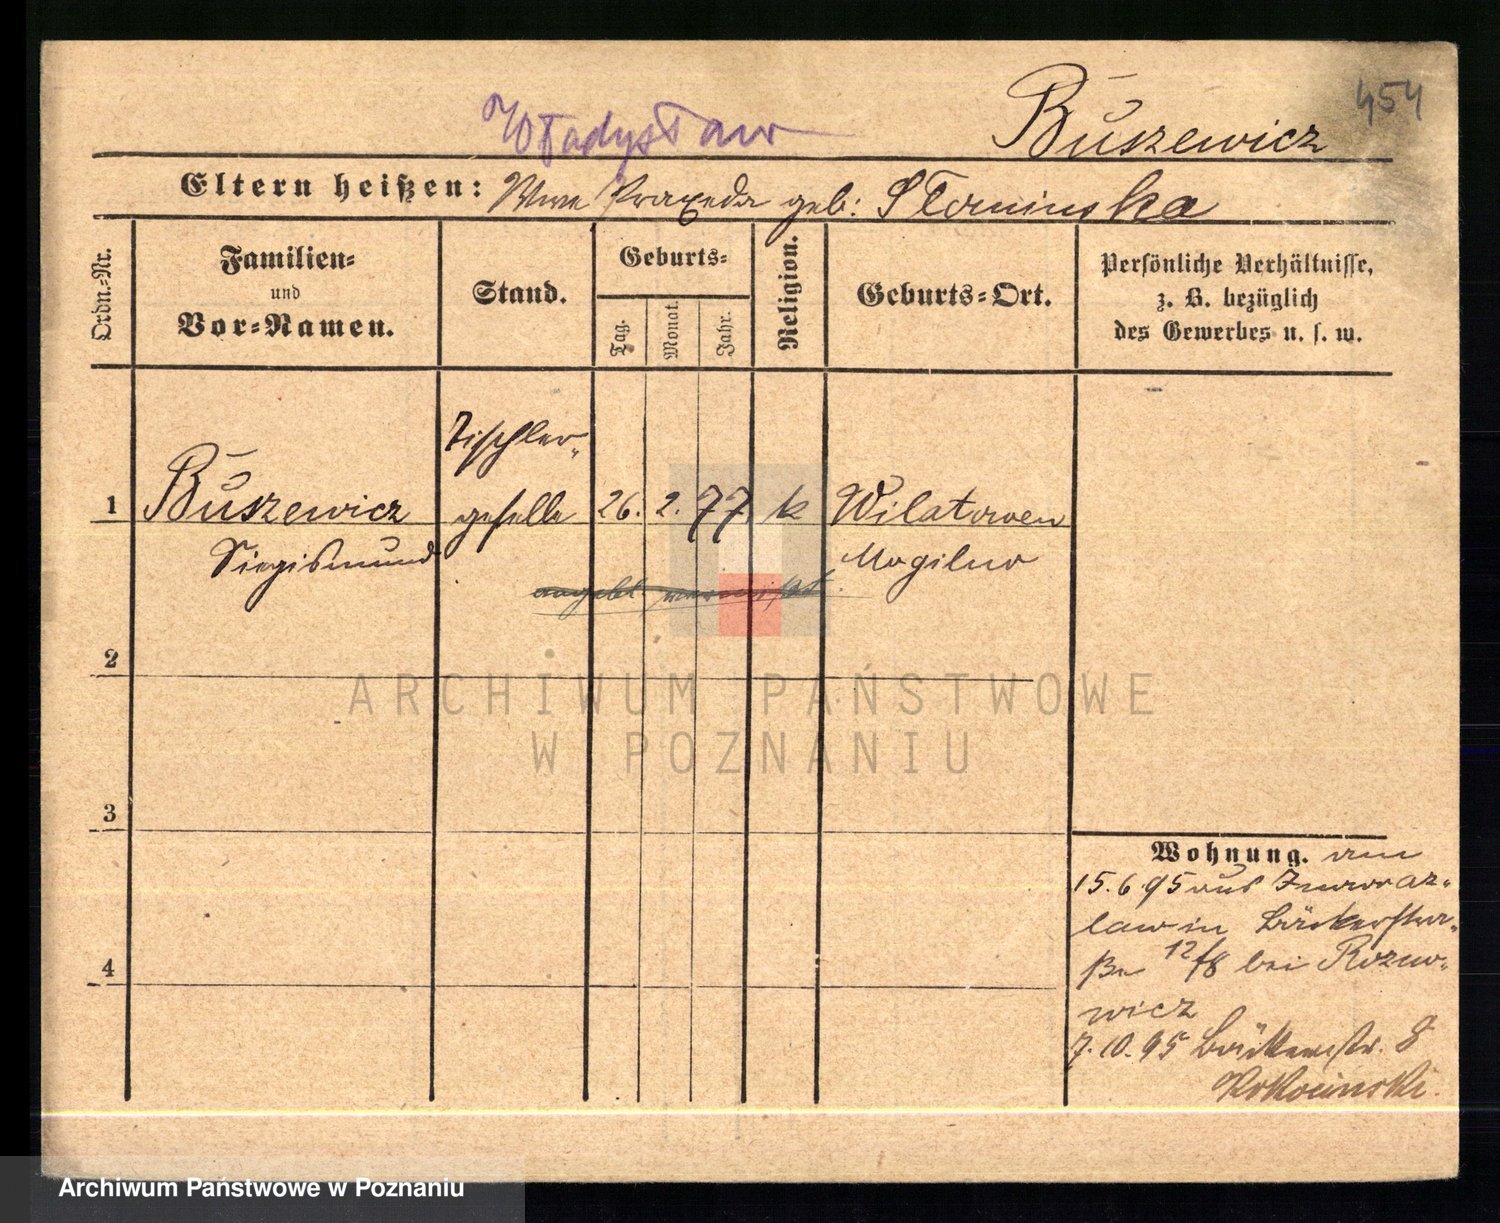 454
Władysław
Buszewicz
Eltern heißen: Wwe Praxeda geb: Slaminska
Ordn.-Nr.
Familien-
und
Vor-Namen.
Stand.
Geburts-
Tag.
Monat.
Jahr.
Religion.
Geburts-Ort.
Persönliche Verhältnisse,
z. B. bezüglich
des Gewerbes u. s. w.
Tischler-
1 Buszewicz geselle 26. 2. 77. k Wilatowen
Siegismund Mogilno
2
3
4
Wohnung. am
15.6.95 aus Inowraz-
law in Bäckerstra-
ße 12/8 bei Rozno-
wicz
7.10.95 Bäckerstr. 8
Kokocinski.
ARCHIWUM PAŃSTWOWE
W POZNANIU
Archiwum Państwowe w Poznaniu